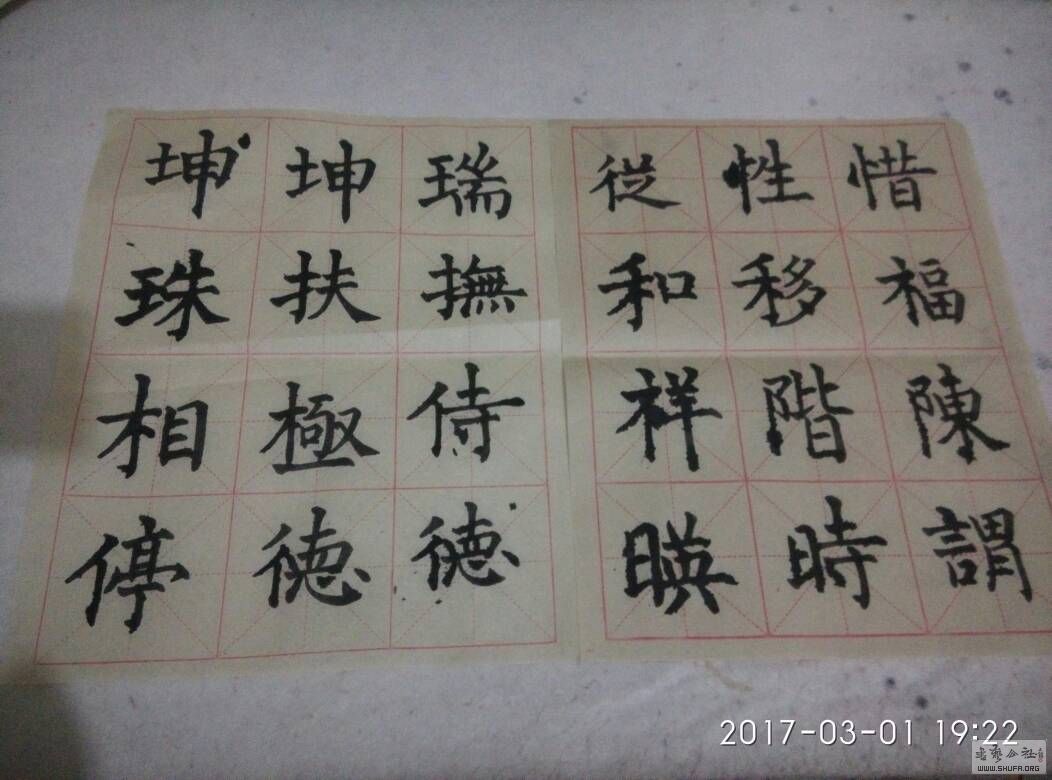 坤坤瑞
珠扶撫
相極侍
停德德
從性惜
和移福
祥階陳
暎時謂
2017-03-01 19:22
WWW.SHUFA.ORG